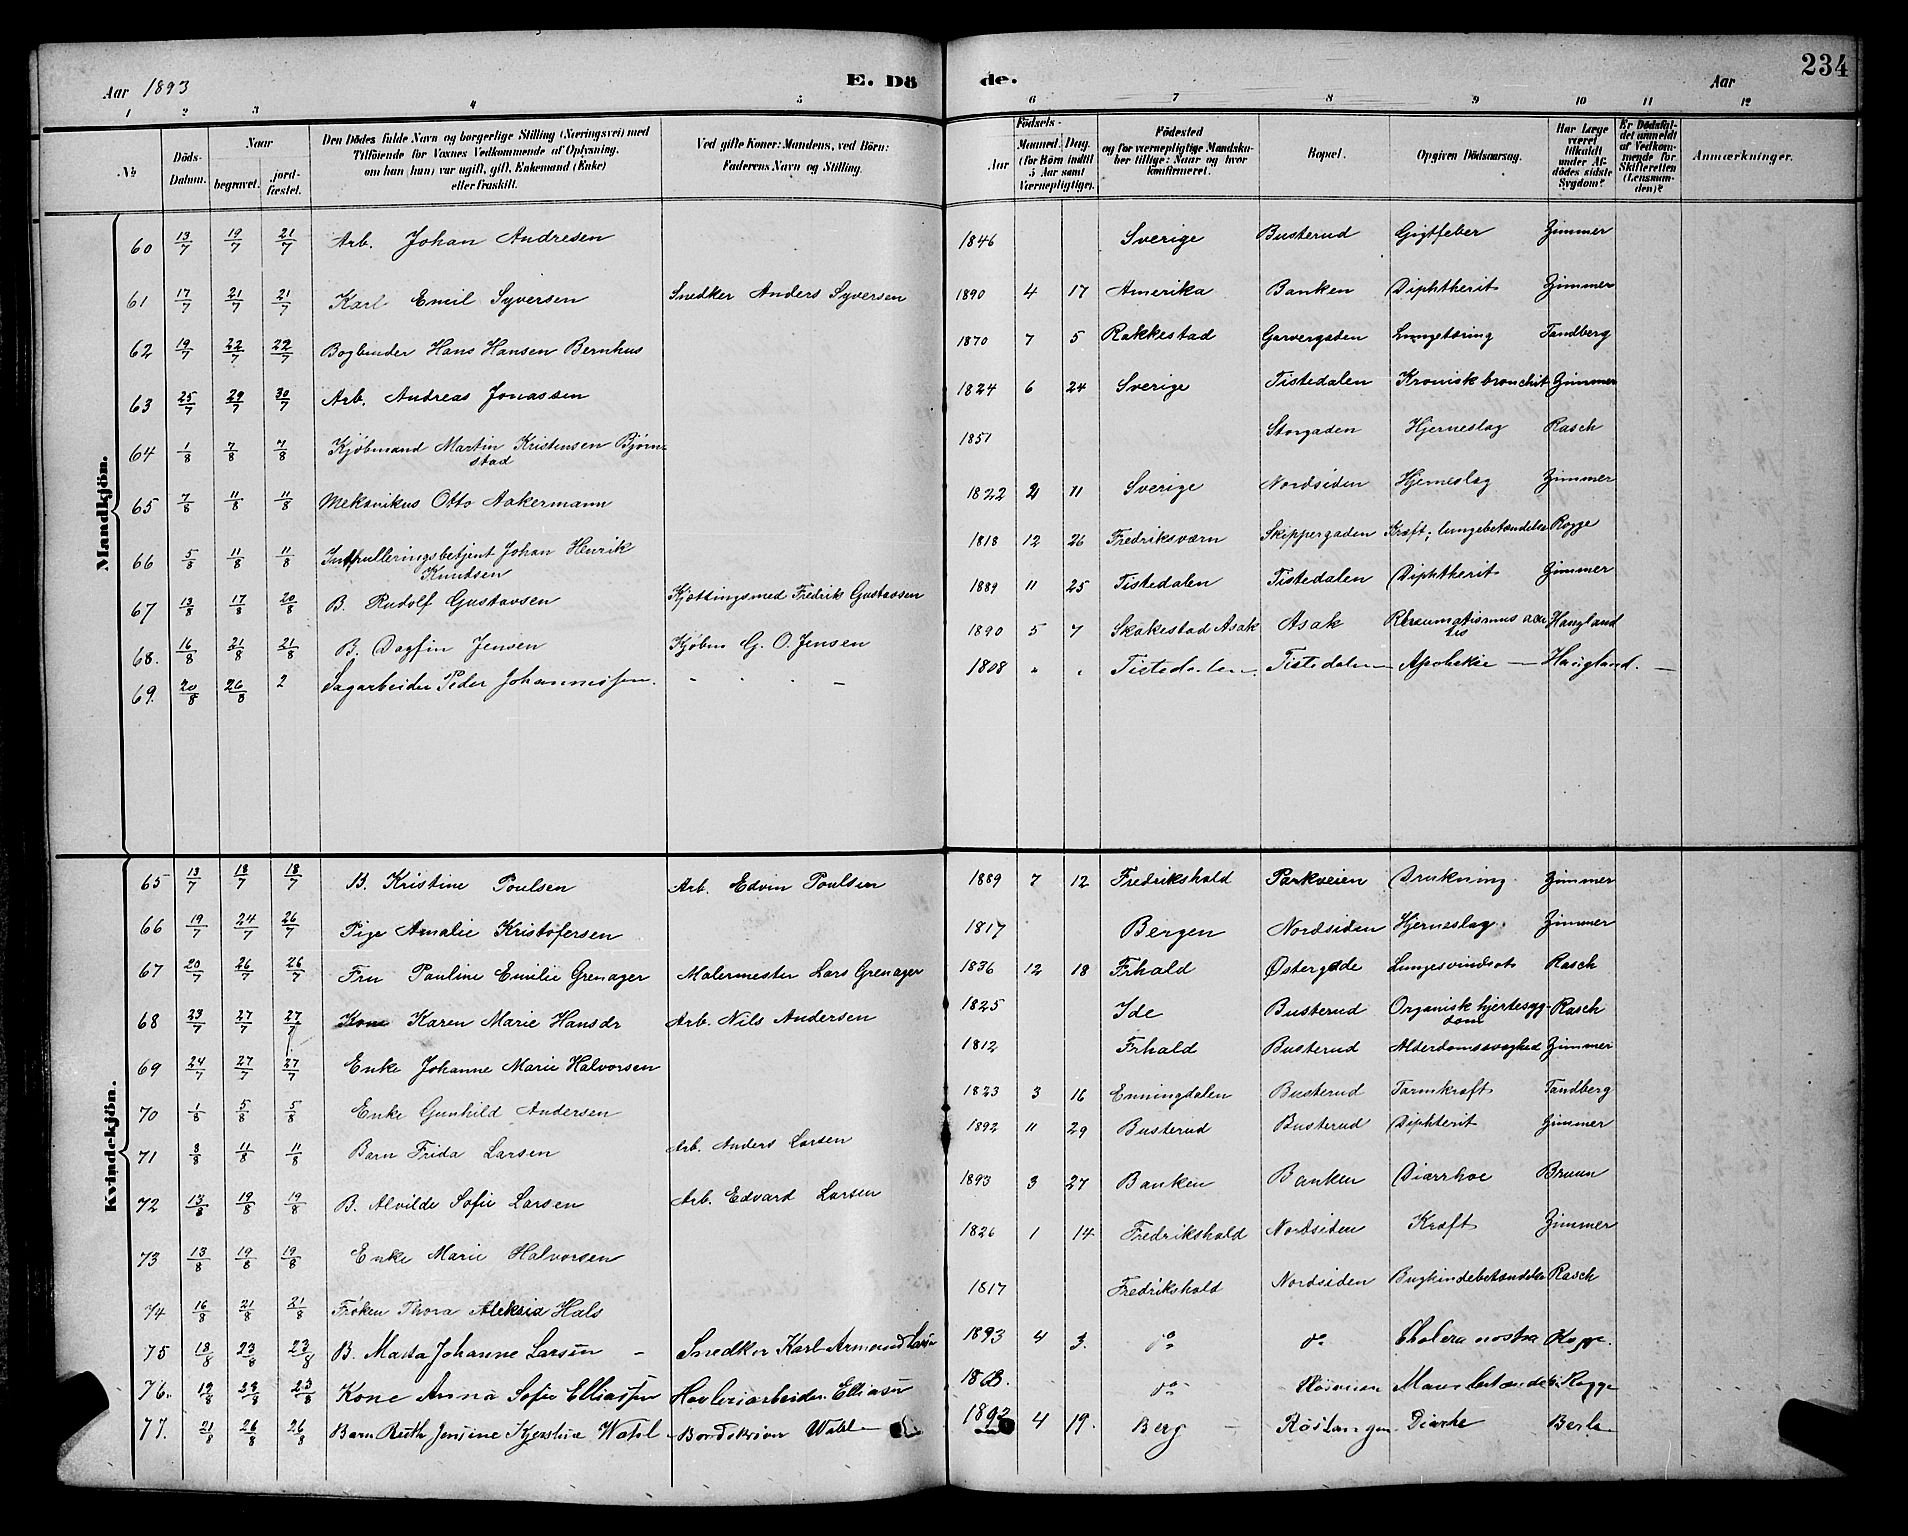 Aar 1893
E. Dö
de.
Aar
234
1 2 3 4 5 6 7 8 9 10 11 12
№
Döds-Datum.
Naar
begravet.
jord-fæstet.
Den Dödes fulde Navn og borgerlige Stilling (Næringsvei) med
Tilföiende for Voxnes Vedkommende af Oplysning,
om han (hun) var ugift, gift, Enkemand (Enke)
eller fraskilt.
Ved gifte Koner: Mandens, ved Börn:
Faderens Navn og Stilling.
Födsels-
Aar
Maaned. Dag.
(for Börn indtil
5 Aar samt
Værnepligtige).
Födested
og for værnepligtige Mandska-
ber tillige: Naar og hvor
konfirmeret.
Bopæl.
Opgiven Dödsaarsag.
Har Læge
været
tilkaldt
under Af-
dödes sidste
Sygdom?
Er Dödsfal-
det anmeldt
af Vedkom-
mende for
Skifteretten
(Lensman-
den)?
Anmærkninger.
Mandkjön.
60 13/7 19/7 21/7 Arb. Johan Andresen 1846 Sverige Busterud Gigtfeber Zimmer
61 17/7 21/7 21/7 Karl Emil Syversen Snedker Anders Syversen 1890 4 17 Amerika Banken Diphtherit Zimmer
62 19/7 22/7 22/7 Bogbinder Hans Hansen Bernhus 1870 7 5 Rakkestad Garvergaden Lungetæring Tandberg
63 25/7 29/7 30/7 Arb. Andreas Jonassen 1824 6 24 Sverige Tistedalen Kronisk bronchit Zimmer
64 1/8 7/8 7/8 Kjöbmand Martin Kristensen Björn-
stad 1851 Storgaden Hjerneslag Rasch
65 7/8 11/8 11/8 Mekanikus Otto Aakermann 1822 2 11 Sverige Nordsiden Hjerneslag Zimmer
66 5/8 11/8 11/8 Johan Henrik
Knudsen 1818 12 26 Fredriksværn Skippergaden Kræft; lungebetændelse Rogge
67 13/8 17/8 20/8 B. Rudolf Gustavsen Fredrik Gustavsen 1889 11 25 Tistedalen Tistedalen Diphtherit Zimmer
68. 16/8 21/8 21/8 B. Dagfin Jensen Kjöbm G. O. Jensen 1890 5 7 Skakestad Asak Asak Rheumatismus acu
tis Haugland
69. 20/8 26/8 2 Sagarbeider Peder Johannessen. 1808 " " Tistedalen Tistedalen Apopleksi Haugland.
Kvindekjön.
65 13/7 18/7 18/7 B. Kristine Poulsen Arb. Edvin Poulsen 1889 7 12 Fredrikshald Parkveien Drukning. Zimmer
66 19/7 24/7 26/7 Pige Amalie Kristofersen 1817 Bergen Nordsiden Hjerneslag. Zimmer
67 20/7 26/7 26/7 Fru Pauline Emilie Grenager Malermester Lars Grenager 1836 12 18 Frhald Østergade Lungesvindsot Rasch
68 23/7 27/7 27/7 Kone Karen Marie Hansdr Arb. Nils Andersen 1825 Ide Busterud Organisk hjertesyg-
dom Rasch
69 24/7 27/7 27/7 Enke Johanne Marie Halvorsen 1812 Frhald Busterud Alderdomssvaghed Zimmer
70 1/8 5/8 5/8 Enke Gunhild Andersen 1823 3 16 Enningdalen Busterud Tarmkræft Tandberg
71 8/8 11/8 11/8 Barn Frida Larsen Arb. Anders Larsen 1892 11 29 Busterud Busterud Diphterit Zimmer
72 13/8 19/8 19/8 B. Alvilde Sofie Larsen Arb. Edvard Larsen 1893 3 27 Banken Banken Diarrhoe Bruun
73 13/8 19/8 19/8 Enke Marie Halvorsen 1826 1 14 Fredrikshald Nordsiden Kræft Zimmer
74 16/8 21/8 21/8 Frøken Thora Aleksia Hals 1817 Fredrikshald Nordsiden Bughindebetændelse Rasch
75 18/8 23/8 23/8 B. Marta Johanne Larsen Snedker Karl Armand Larsen 1893 4 3. do do Cholera nostra Rogge.
76. 19/8 23/8 23/8 Kone Anna Sofie Elliassen Høvleriarbeider Elliasen do Rogge
77. 21/8 26/8 26/8 Barn Ruth Jensine Kjerstine Wahl Bordskriver Wahl 1892 4 19. Berg Diarhe